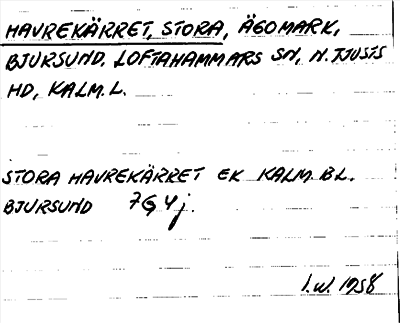 HAVREKÄRRET, STORA, ÄGOMARK,
BJURSUND, LOFTAHAMMARS SN, N. TJUSTS
HD, KALM. L.
STORA HAVREKÄRRET EK KALM. BL.
BJURSUND 7G 4j.
I.W. 1958